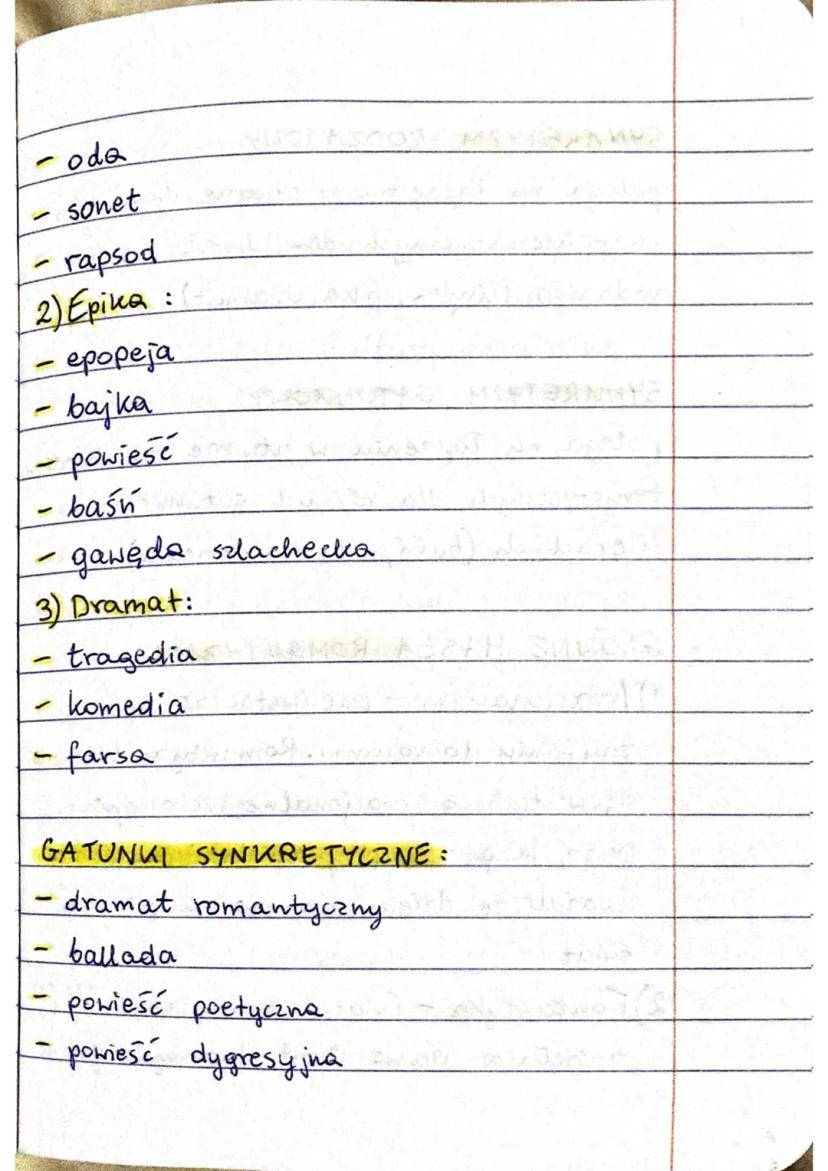 - oda
- sonet
- rapsod
2) Epika :
- epopeja
- bajka
- powieść
- baśń
- gawęda szlachecka
3) Dramat:
- tragedia
- komedia
- farsa
GATUNKI SYNKRETYCZNE :
- dramat romantyczny
- ballada
- powieść poetyczna
- powieść dygresyjna